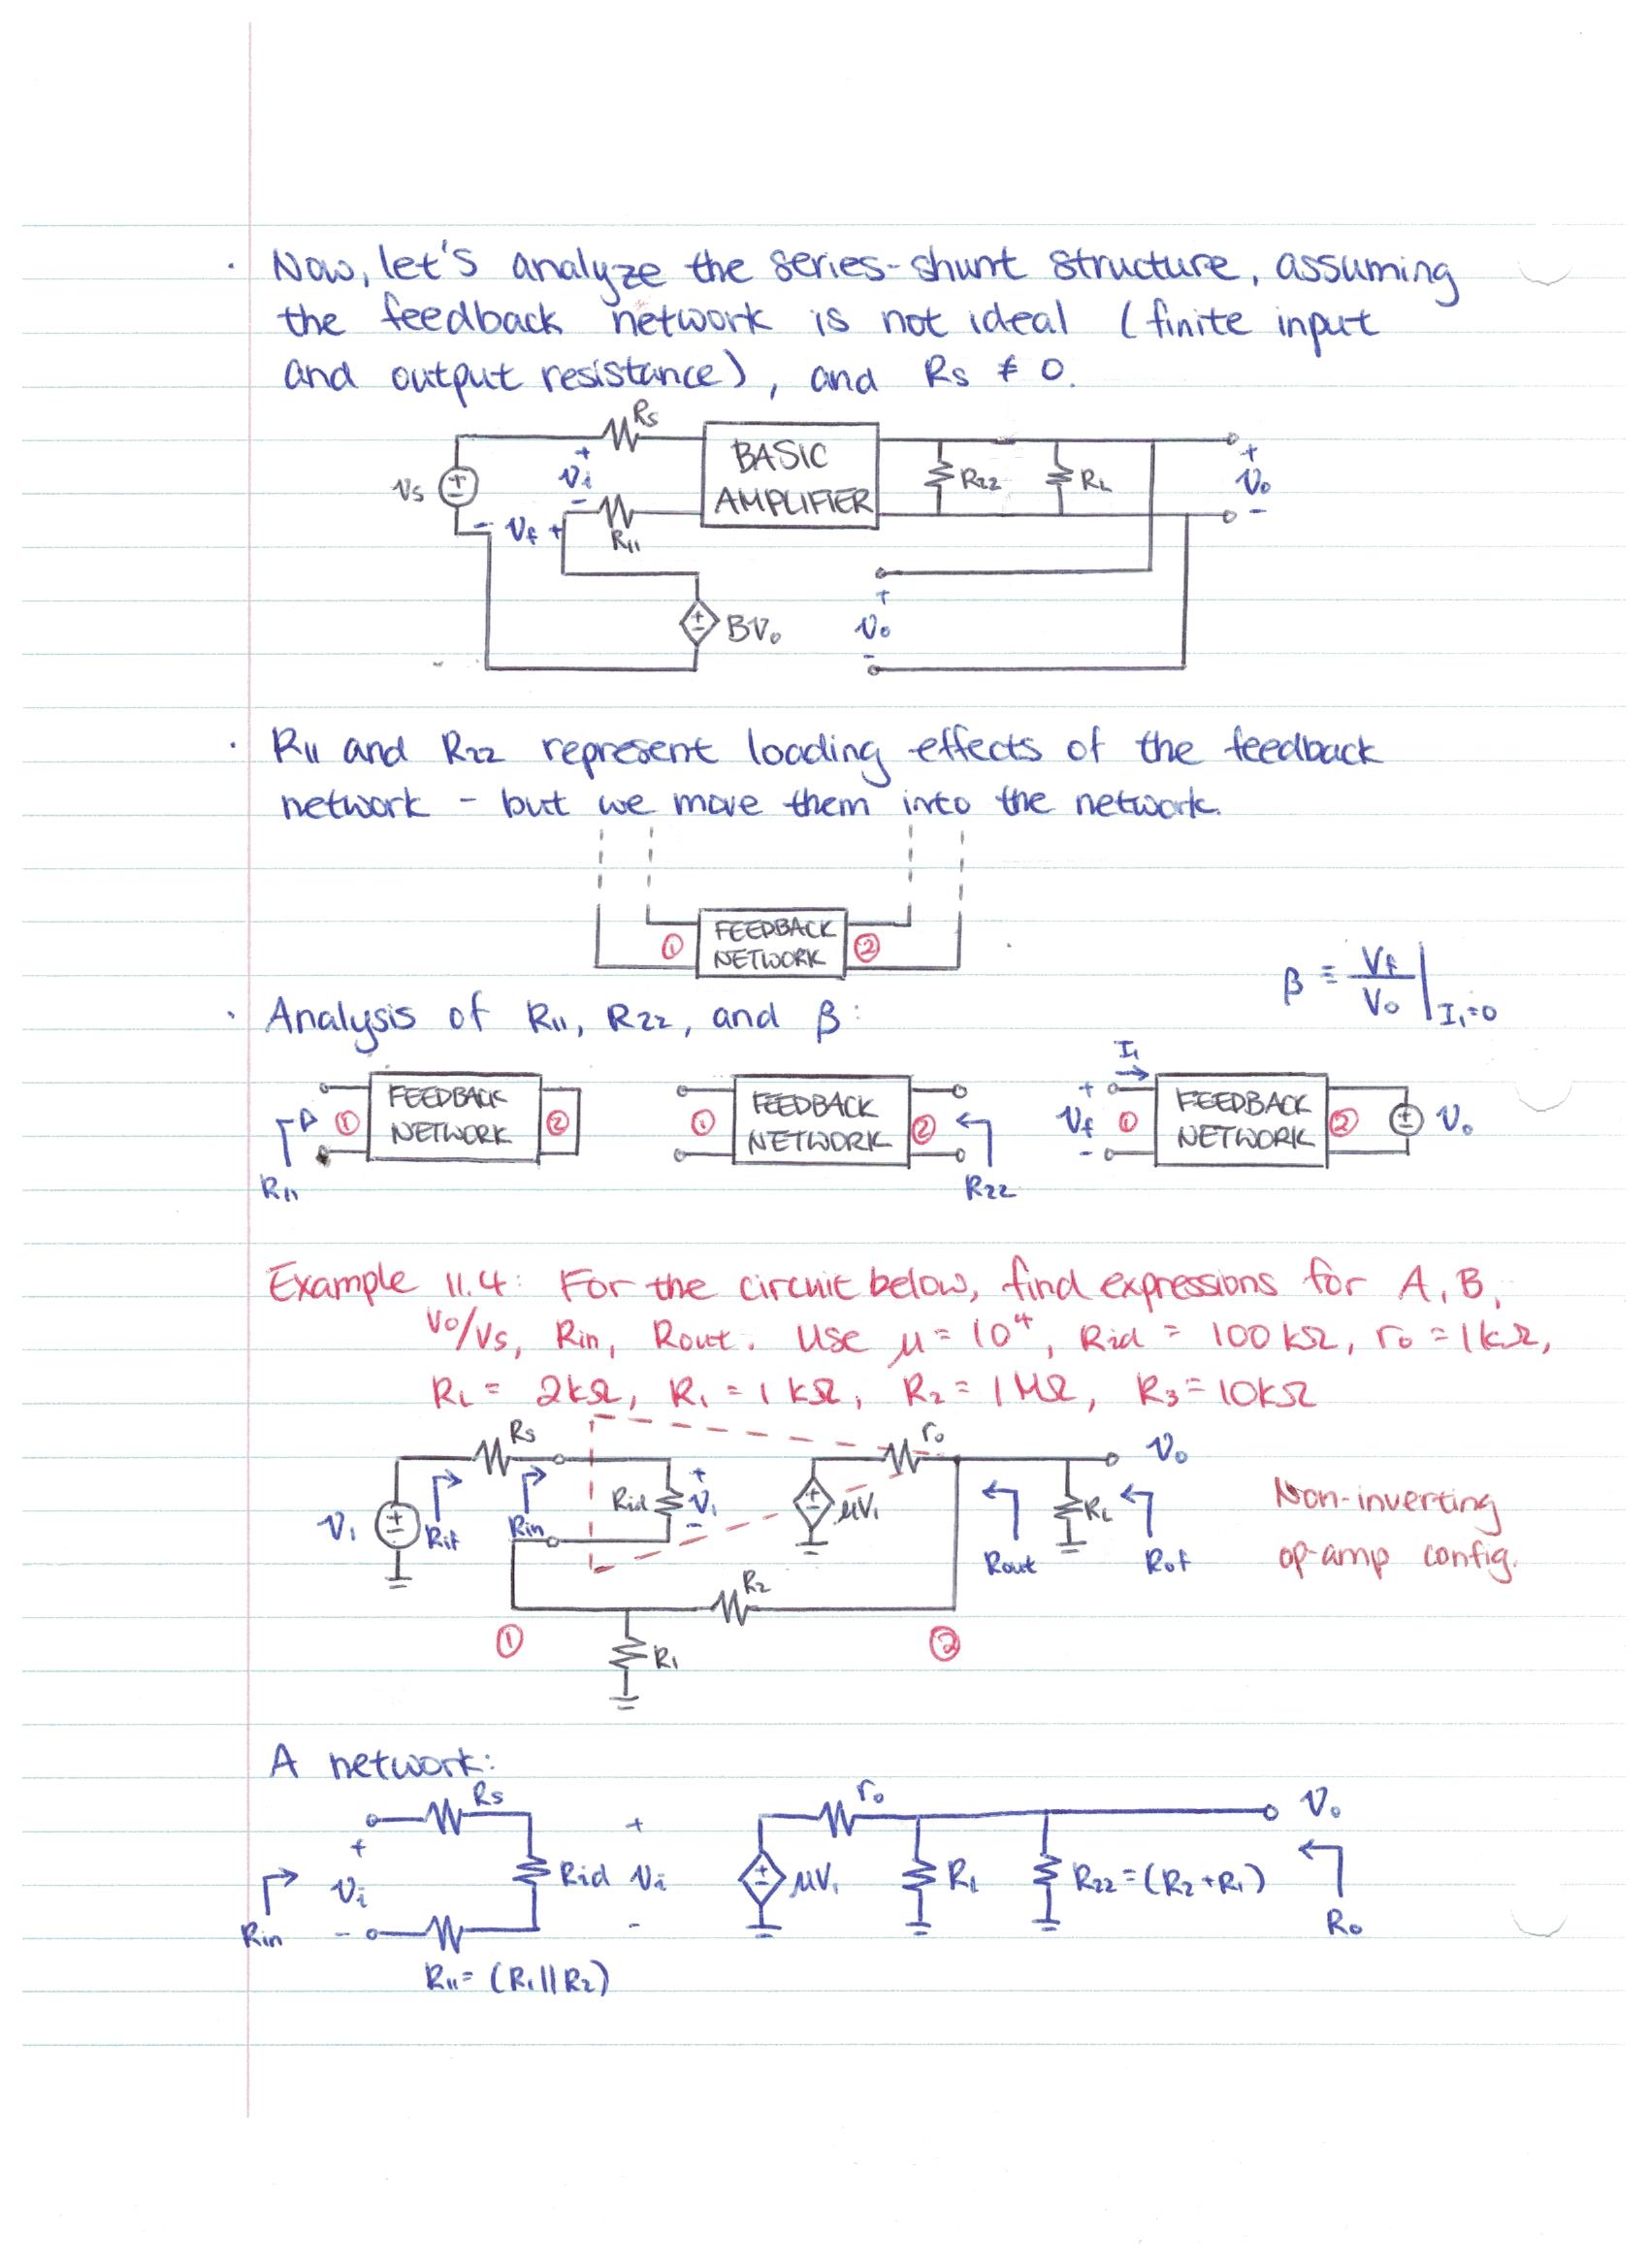 · Now, let's analyze the series-shunt structure, assuming
the feedback network is not ideal (finite input
and output resistance), and Rs ≠ 0.
Rs
BASIC
AMPLIFIER
Vs
+
Vi
-
R22
RL
+
Vo
-
- Vf +
R11
BVo
+
Vo
-
· R11 and R22 represent loading effects of the feedback
network - but we move them into the network.
① FEEDBACK ②
NETWORK
β ≡ Vf/Vo | I1=0
· Analysis of R11, R22, and β:
① FEEDBACK ②
NETWORK
R11
① FEEDBACK ②
NETWORK
R22
I1
+
Vf
-
① FEEDBACK ②
NETWORK
Vo
Example 11.4: For the circuit below, find expressions for A, B,
Vo/Vs, Rin, Rout. Use μ = 10⁴, Rid = 100 kΩ, ro = 1kΩ,
RL = 2kΩ, R1 = 1 kΩ, R2 = 1 MΩ, R3 = 10kΩ
Rs
ro
Vo
V1
Rif
Rin
Rid
+
V1
-
μV1
Rout
RL
Rof
Non-inverting
op-amp config.
R2
①
②
R1
A network:
Rs
ro
Vo
+
Vi
-
Rin
Rid
+
Vi
-
μV1
RL
R22 = (R2 + R1)
Ro
R11 = (R1 || R2)